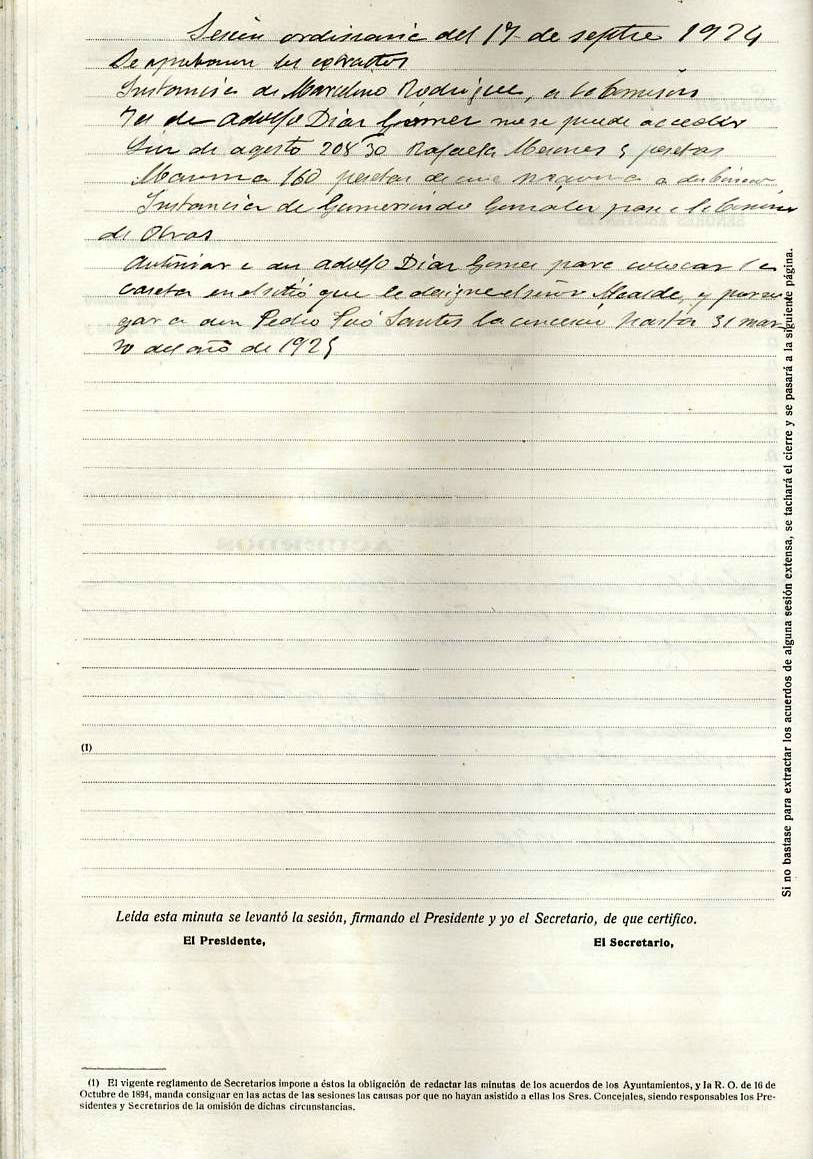 Sesión ordinaria del 17 de septre 1924
Se aprobaron los extractos
Instancia de Marcelino Rodriguez, a la Comisión
Id de Adolfo Diaz Gómez no se puede acceder
Luz de agosto 208'30 Rafaela 5 pesetas
160 pesetas de una maquina a
Instancia de Gumersindo Gonzalez pase a la Comisión
de Obras
Autorizar a don Adolfo Diaz Gomez para colocar la
caseta en el sitio que le designe el señor Alcalde, y prorro
gar a don Pedro Santos la concesion hasta 31 mar-
zo del año de 1925
(1)
Si no bastase para extractar los acuerdos de alguna sesión extensa, se tachará el cierre y se pasará a la siguiente página.
Leída esta minuta se levantó la sesión, firmando el Presidente y yo el Secretario, de que certifico.
El Presidente, El Secretario,
(1) El vigente reglamento de Secretarios impone a éstos la obligación de redactar las minutas de los acuerdos de los Ayuntamientos, y la R. O. de 16 de
Octubre de 1894, manda consignar en las actas de las sesiones las causas por que no hayan asistido a ellas los Sres. Concejales, siendo responsables los Pre-
sidentes y Secretarios de la omisión de dichas circunstancias.